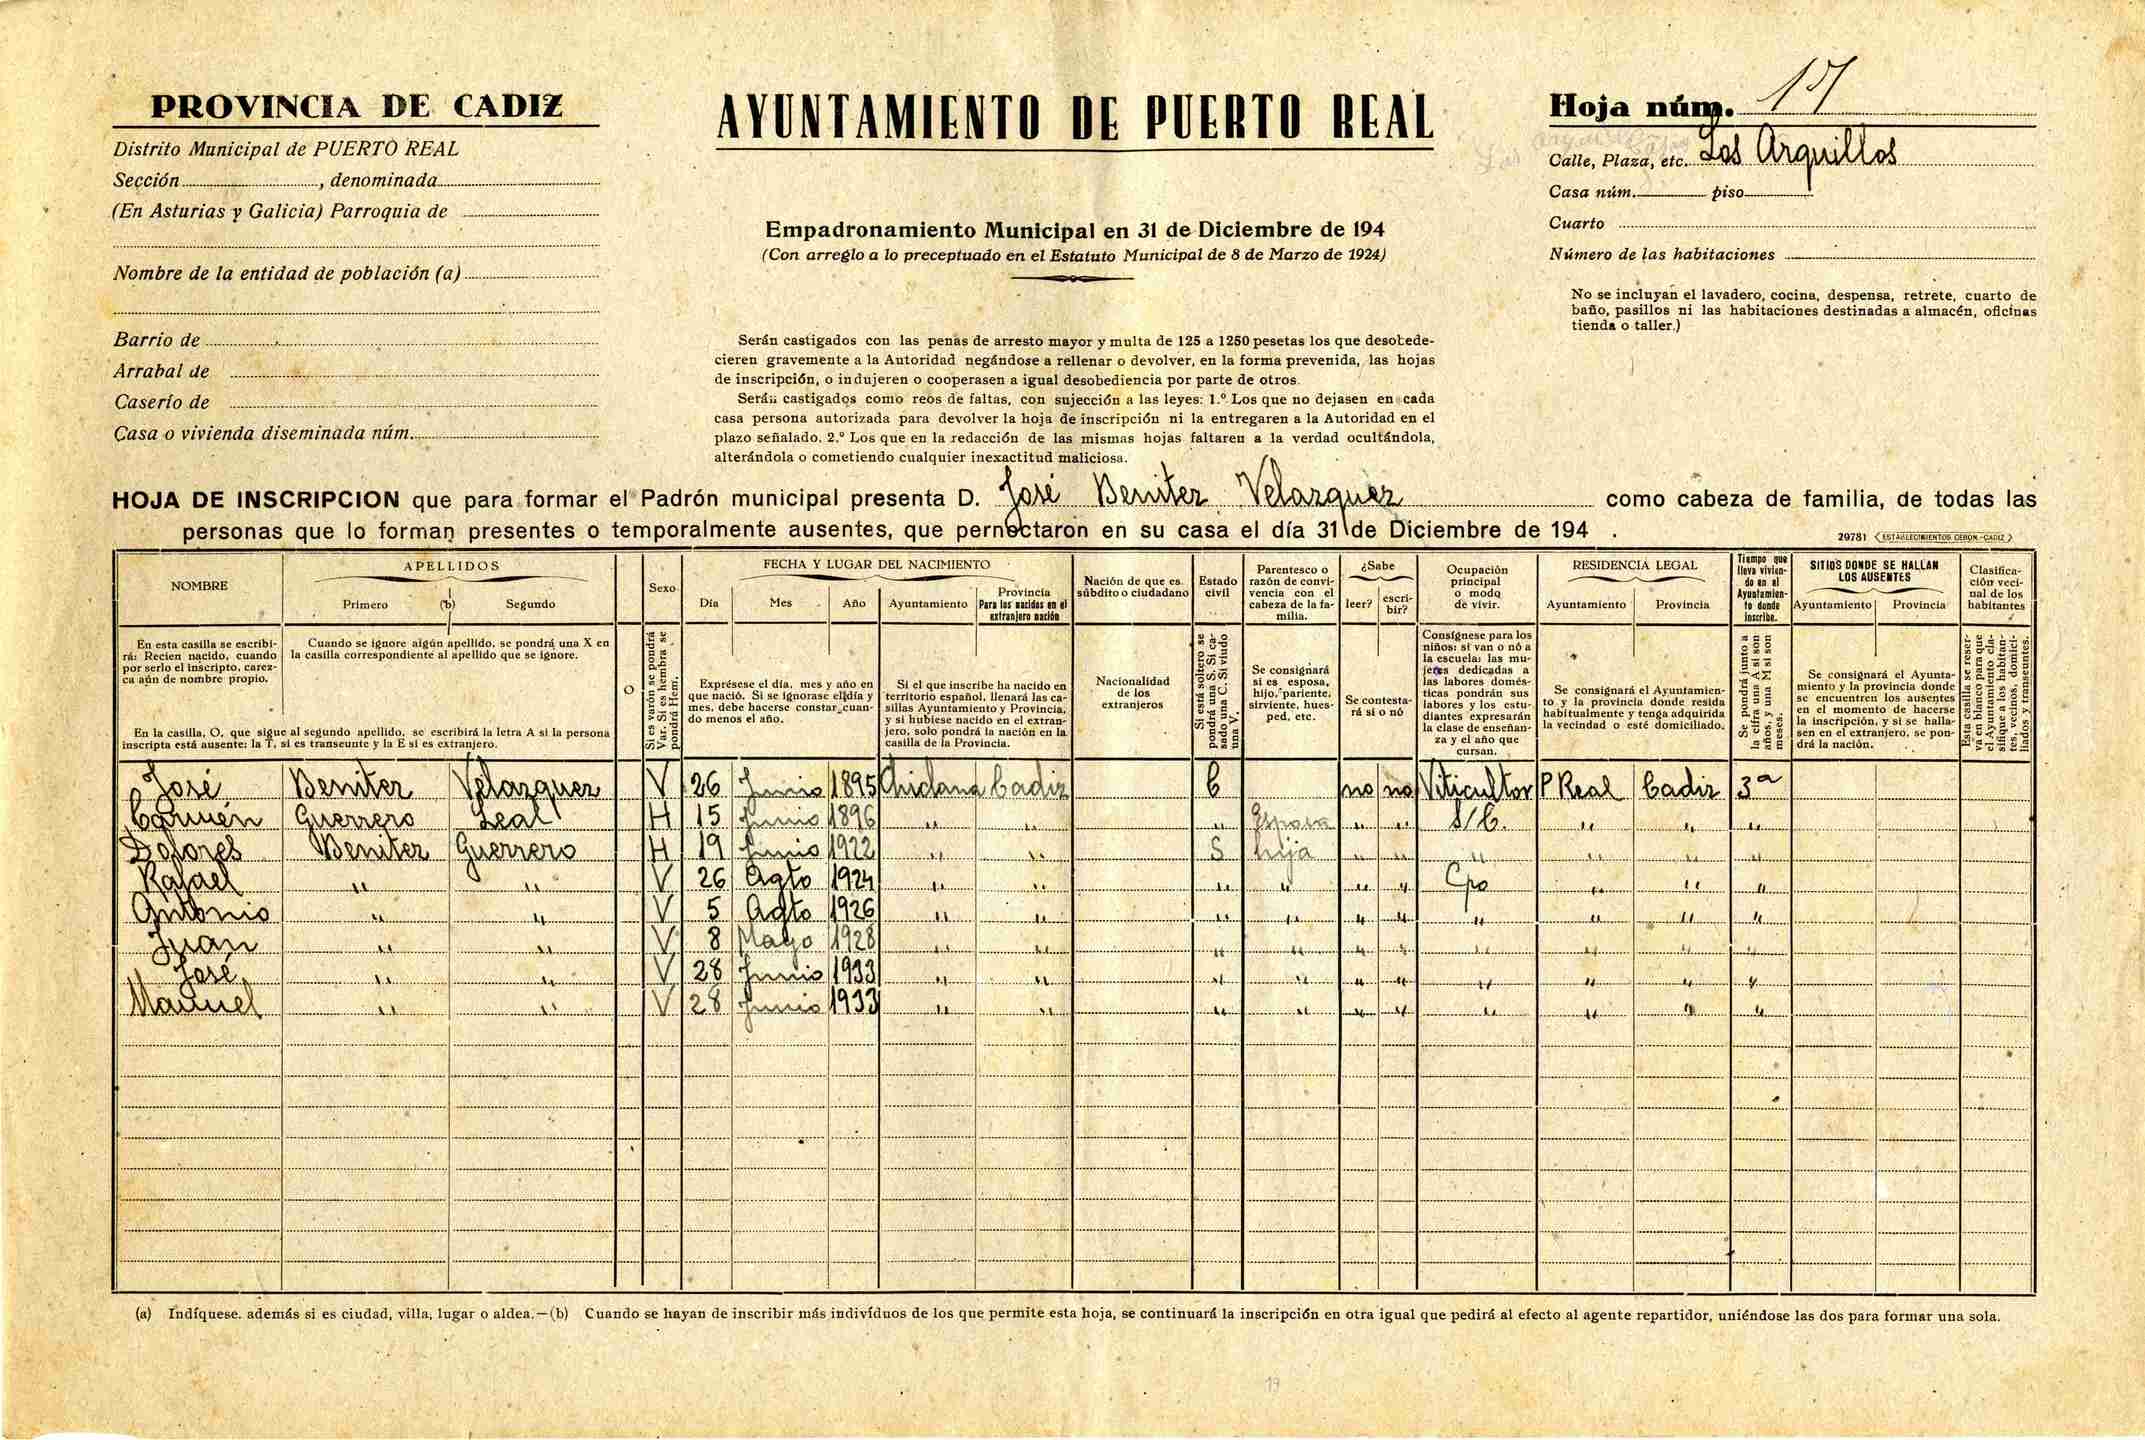 PROVINCIA DE CADIZ
Distrito Municipal de PUERTO REAL
Sección , denominada
(En Asturias y Galicia) Parroquia de
Nombre de la entidad de población (a)
Barrio de
Arrabal de
Caserío de
Casa o vivienda diseminada núm.
AYUNTAMIENTO DE PUERTO REAL
Empadronamiento Municipal en 31 de Diciembre de 194
(Con arreglo a lo preceptuado en el Estatuto Municipal de 8 de Marzo de 1924)
Serán castigados con las penas de arresto mayor y multa de 125 a 1250 pesetas los que desobede-
cieren gravemente a la Autoridad negándose a rellenar o devolver, en la forma prevenida, las hojas
de inscripción, o indujeren o cooperasen a igual desobediencia por parte de otros.
Serán castigados como reos de faltas, con sujección a las leyes: 1.º Los que no dejasen en cada
casa persona autorizada para devolver la hoja de inscripción ni la entregaren a la Autoridad en el
plazo señalado. 2.º Los que en la redacción de las mismas hojas faltaren a la verdad ocultándola,
alterándola o cometiendo cualquier inexactitud maliciosa.
Hoja núm. 17
Calle, Plaza, etc. Los Arquillos
Casa núm. piso
Cuarto
Número de las habitaciones
No se incluyan el lavadero, cocina, despensa, retrete, cuarto de
baño, pasillos ni las habitaciones destinadas a almacén, oficinas
tienda o taller.)
HOJA DE INSCRIPCION que para formar el Padrón municipal presenta D. José Benitez Velazquez como cabeza de familia, de todas las
personas que lo forman presentes o temporalmente ausentes, que pernoctaron en su casa el día 31 de Diciembre de 194 .
29781 ESTABLECIMIENTOS CERON.-CADIZ
NOMBRE
APELLIDOS
Primero (b) Segundo
O
Sexo
FECHA Y LUGAR DEL NACIMIENTO
Día Mes Año Ayuntamiento Provincia
Para los nacidos en el
extranjero nación
Nación de que es
súbdito o ciudadano
Estado
civil
Parentesco o
razón de convi-
vencia con el
cabeza de la fa-
milia.
¿Sabe
leer? escri-
bir?
Ocupación
principal
o modo
de vivir.
RESIDENCIA LEGAL
Ayuntamiento Provincia
Tiempo que
lleva vivien-
do en el
Ayuntamien-
to donde
inscribe.
SITIOS DONDE SE HALLAN
LOS AUSENTES
Ayuntamiento Provincia
Clasifica-
ción veci-
nal de los
habitantes
En esta casilla se escribi-
rá: Recien nacido, cuando
por serlo el inscripto, carez-
ca aún de nombre propio.
Cuando se ignore algún apellido, se pondrá una X en
la casilla correspondiente al apellido que se ignore.
En la casilla, O, que sigue al segundo apellido, se escribirá la letra A si la persona
inscripta está ausente: la T, si es transeunte y la E si es extranjero.
Si es varón se pondrá
Var. Si es hembra se
pondrá Hem.
Exprésese el día, mes y año en
que nació. Si se ignorase el día y
mes, debe hacerse constar cuan-
do menos el año.
Si el que inscribe ha nacido en
territorio español, llenará las ca-
sillas Ayuntamiento y Provincia,
y si hubiese nacido en el extran-
jero, solo pondrá la nación en la
casilla de la Provincia.
Nacionalidad
de los
extranjeros
Si está soltero se
pondrá una S. Si ca-
sado una C. Si viudo
una V.
Se consignará
si es esposa,
hijo, pariente,
sirviente, hues-
ped, etc.
Se contesta-
rá si o nó
Consígnese para los
niños: si van o nó a
la escuela: las mu-
jeres dedicadas a
las labores domés-
ticas pondrán sus
labores y los estu-
diantes expresarán
la clase de enseñan-
za y el año que
cursan.
Se consignará el Ayuntamien-
to y la provincia donde resida
habitualmente y tenga adquirida
la vecindad o esté domiciliado.
Se pondrá junto a
la cifra una A si son
años, y una M si son
meses.
Se consignará el Ayunta-
miento y la provincia donde
se encuentren los ausentes
en el momento de hacerse
la inscripción, y si se halla-
sen en el extranjero, se pon-
drá la nación.
Esta casilla se reser-
va en blanco para que
el Ayuntamiento cla-
sifique a los habitan-
tes, vecinos, domici-
liados y transeuntes.
José Benitez Velazquez V 26 Junio 1895 Chiclana Cadiz C no no Viticultor P Real Cadiz 3 a
Carmen Guerrero Leal H 15 Junio 1896 " " " Esposa " " S/C. " " "
Dolores Benitez Guerrero H 19 Junio 1922 " " S hija " " " " " "
Rafael " " V 26 Agto 1924 " " " " " " Cpo " " "
Antonio " " V 5 Agto 1926 " " " " " " " " " "
Juan " " V 8 Mayo 1928 " " " " " " " " " "
José " " V 28 Junio 1933 " " " " " " " " " "
Manuel " " V 28 Junio 1933 " " " " " " " " " "
(a) Indíquese. además si es ciudad, villa, lugar o aldea.—(b) Cuando se hayan de inscribir más individuos de los que permite esta hoja, se continuará la inscripción en otra igual que pedirá al efecto al agente repartidor, uniéndose las dos para formar una sola.